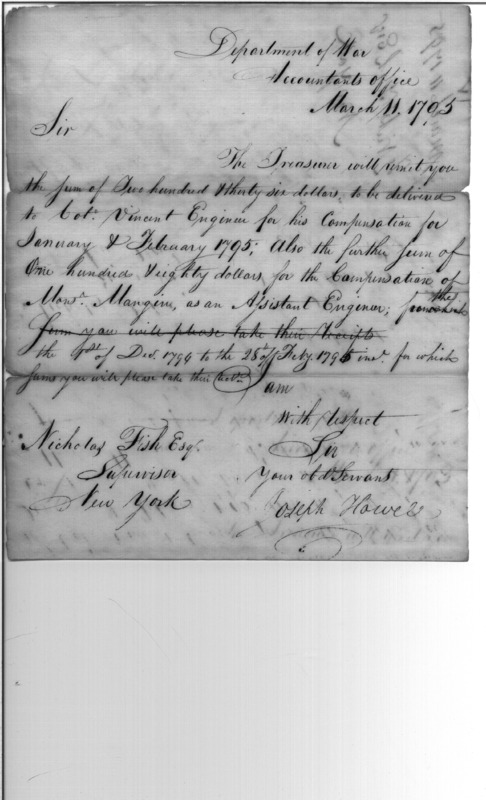 Department of War
Accountants office
March 11. 1795
Sir
The Treasurer will remit you
the sum of Two hundred & thirty six dollars, to be delivered
to Colo. Vincent Engineer for his Compensation for
January & February 1795; Also the further sum of
One hundred & eighty dollars for the Compensation of
Monsr. Mangin, as an Assistant Engineer; from the
sum you will please take their receipts
the 1st of Decr. 1794 to the 28 of Feby. 1795 inve. for which
sums you will please take their
I am
With respect
Nicholas Fish Esqr. Sir
Supervisor Your obd Servant
New York Joseph Howell